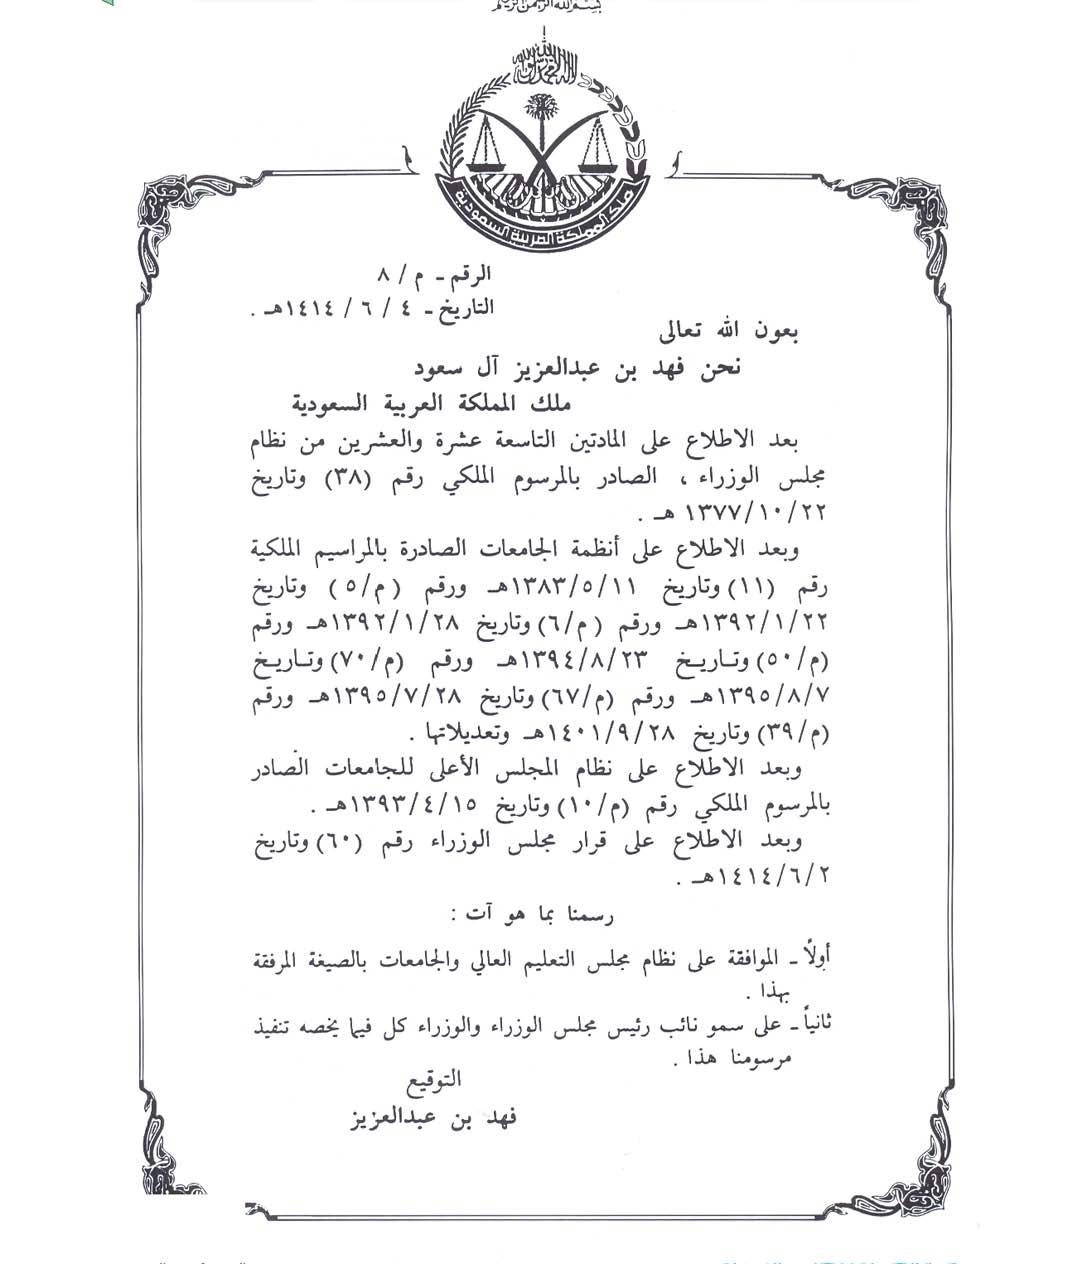 بسم الله الرحمن الرحيم
لا إله إلا الله محمد رسول الله
ملك المملكة العربية السعودية
الرقم ـ م / ٨
التاريخ ـ ٤ / ٦ / ١٤١٤هـ .
بعون الله تعالى
نحن فهد بن عبدالعزيز آل سعود
ملك المملكة العربية السعودية
بعد الاطلاع على المادتين التاسعة عشرة والعشرين من نظام
مجلس الوزراء ، الصادر بالمرسوم الملكي رقم (٣٨) وتاريخ
١٣٧٧/١٠/٢٢ هـ .
وبعد الاطلاع على أنظمة الجامعات الصادرة بالمراسيم الملكية
رقم (١١) وتاريخ ١٣٨٣/٥/١١هـ ورقم (م/٥) وتاريخ
١٣٩٢/١/٢٢هـ ورقم (م/٦) وتاريخ ١٣٩٢/١/٢٨هـ ورقم
(م/٥٠) وتاريخ ١٣٩٤/٨/٢٣هـ ورقم (م/٧٠) وتاريخ
١٣٩٥/٨/٧هـ ورقم (م/٦٧) وتاريخ ١٣٩٥/٧/٢٨هـ ورقم
(م/٣٩) وتاريخ ١٤٠١/٩/٢٨هـ وتعديلاتها .
وبعد الاطلاع على نظام المجلس الأعلى للجامعات الصادر
بالمرسوم الملكي رقم (م/١٠) وتاريخ ١٣٩٣/٤/١٥هـ .
وبعد الاطلاع على قرار مجلس الوزراء رقم (٦٠) وتاريخ
١٤١٤/٦/٢هـ .
رسمنا بما هو آت :
أولاً ـ الموافقة على نظام مجلس التعليم العالي والجامعات بالصيغة المرفقة
بهذا .
ثانياً ـ على سمو نائب رئيس مجلس الوزراء والوزراء كل فيما يخصه تنفيذ
مرسومنا هذا .
التوقيع
فهد بن عبدالعزيز